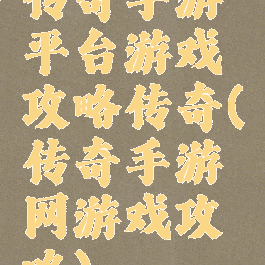 传奇手游
平台游戏
攻略传奇(
传奇手游
网游戏攻
略)